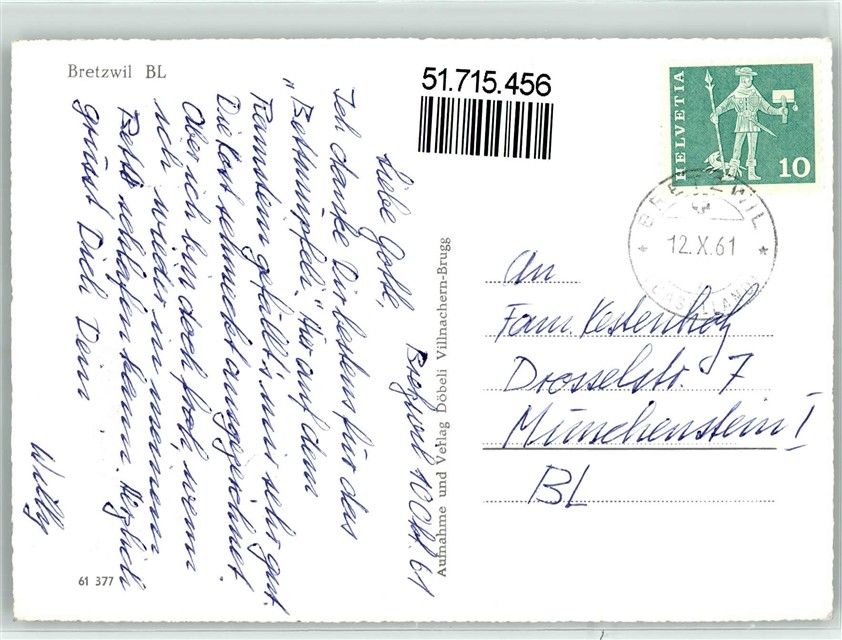 Bretzwil BL
51.715.456
HELVETIA
10
BRETZWIL
12.X.61
(BASELLAND)
Bretzwil 10 Okt. 61
Liebe Gotte,
Ich danke Dir bestens für das
"Bettmümpfeli". Hier auf dem
Ramstein gefällt's mir sehr gut.
Die Kost schmeckt ausgezeichnet.
Aber ich bin doch froh, wenn
ich wieder in meinem
Bett schlafen kann. Herzlich
grüsst Dich Dein
Willy
Aufnahme und Verlag Döbeli Villnachern-Brugg
An
Fam. Kestenholz
Drosselstr. 7
Münchenstein I
BL
61 377